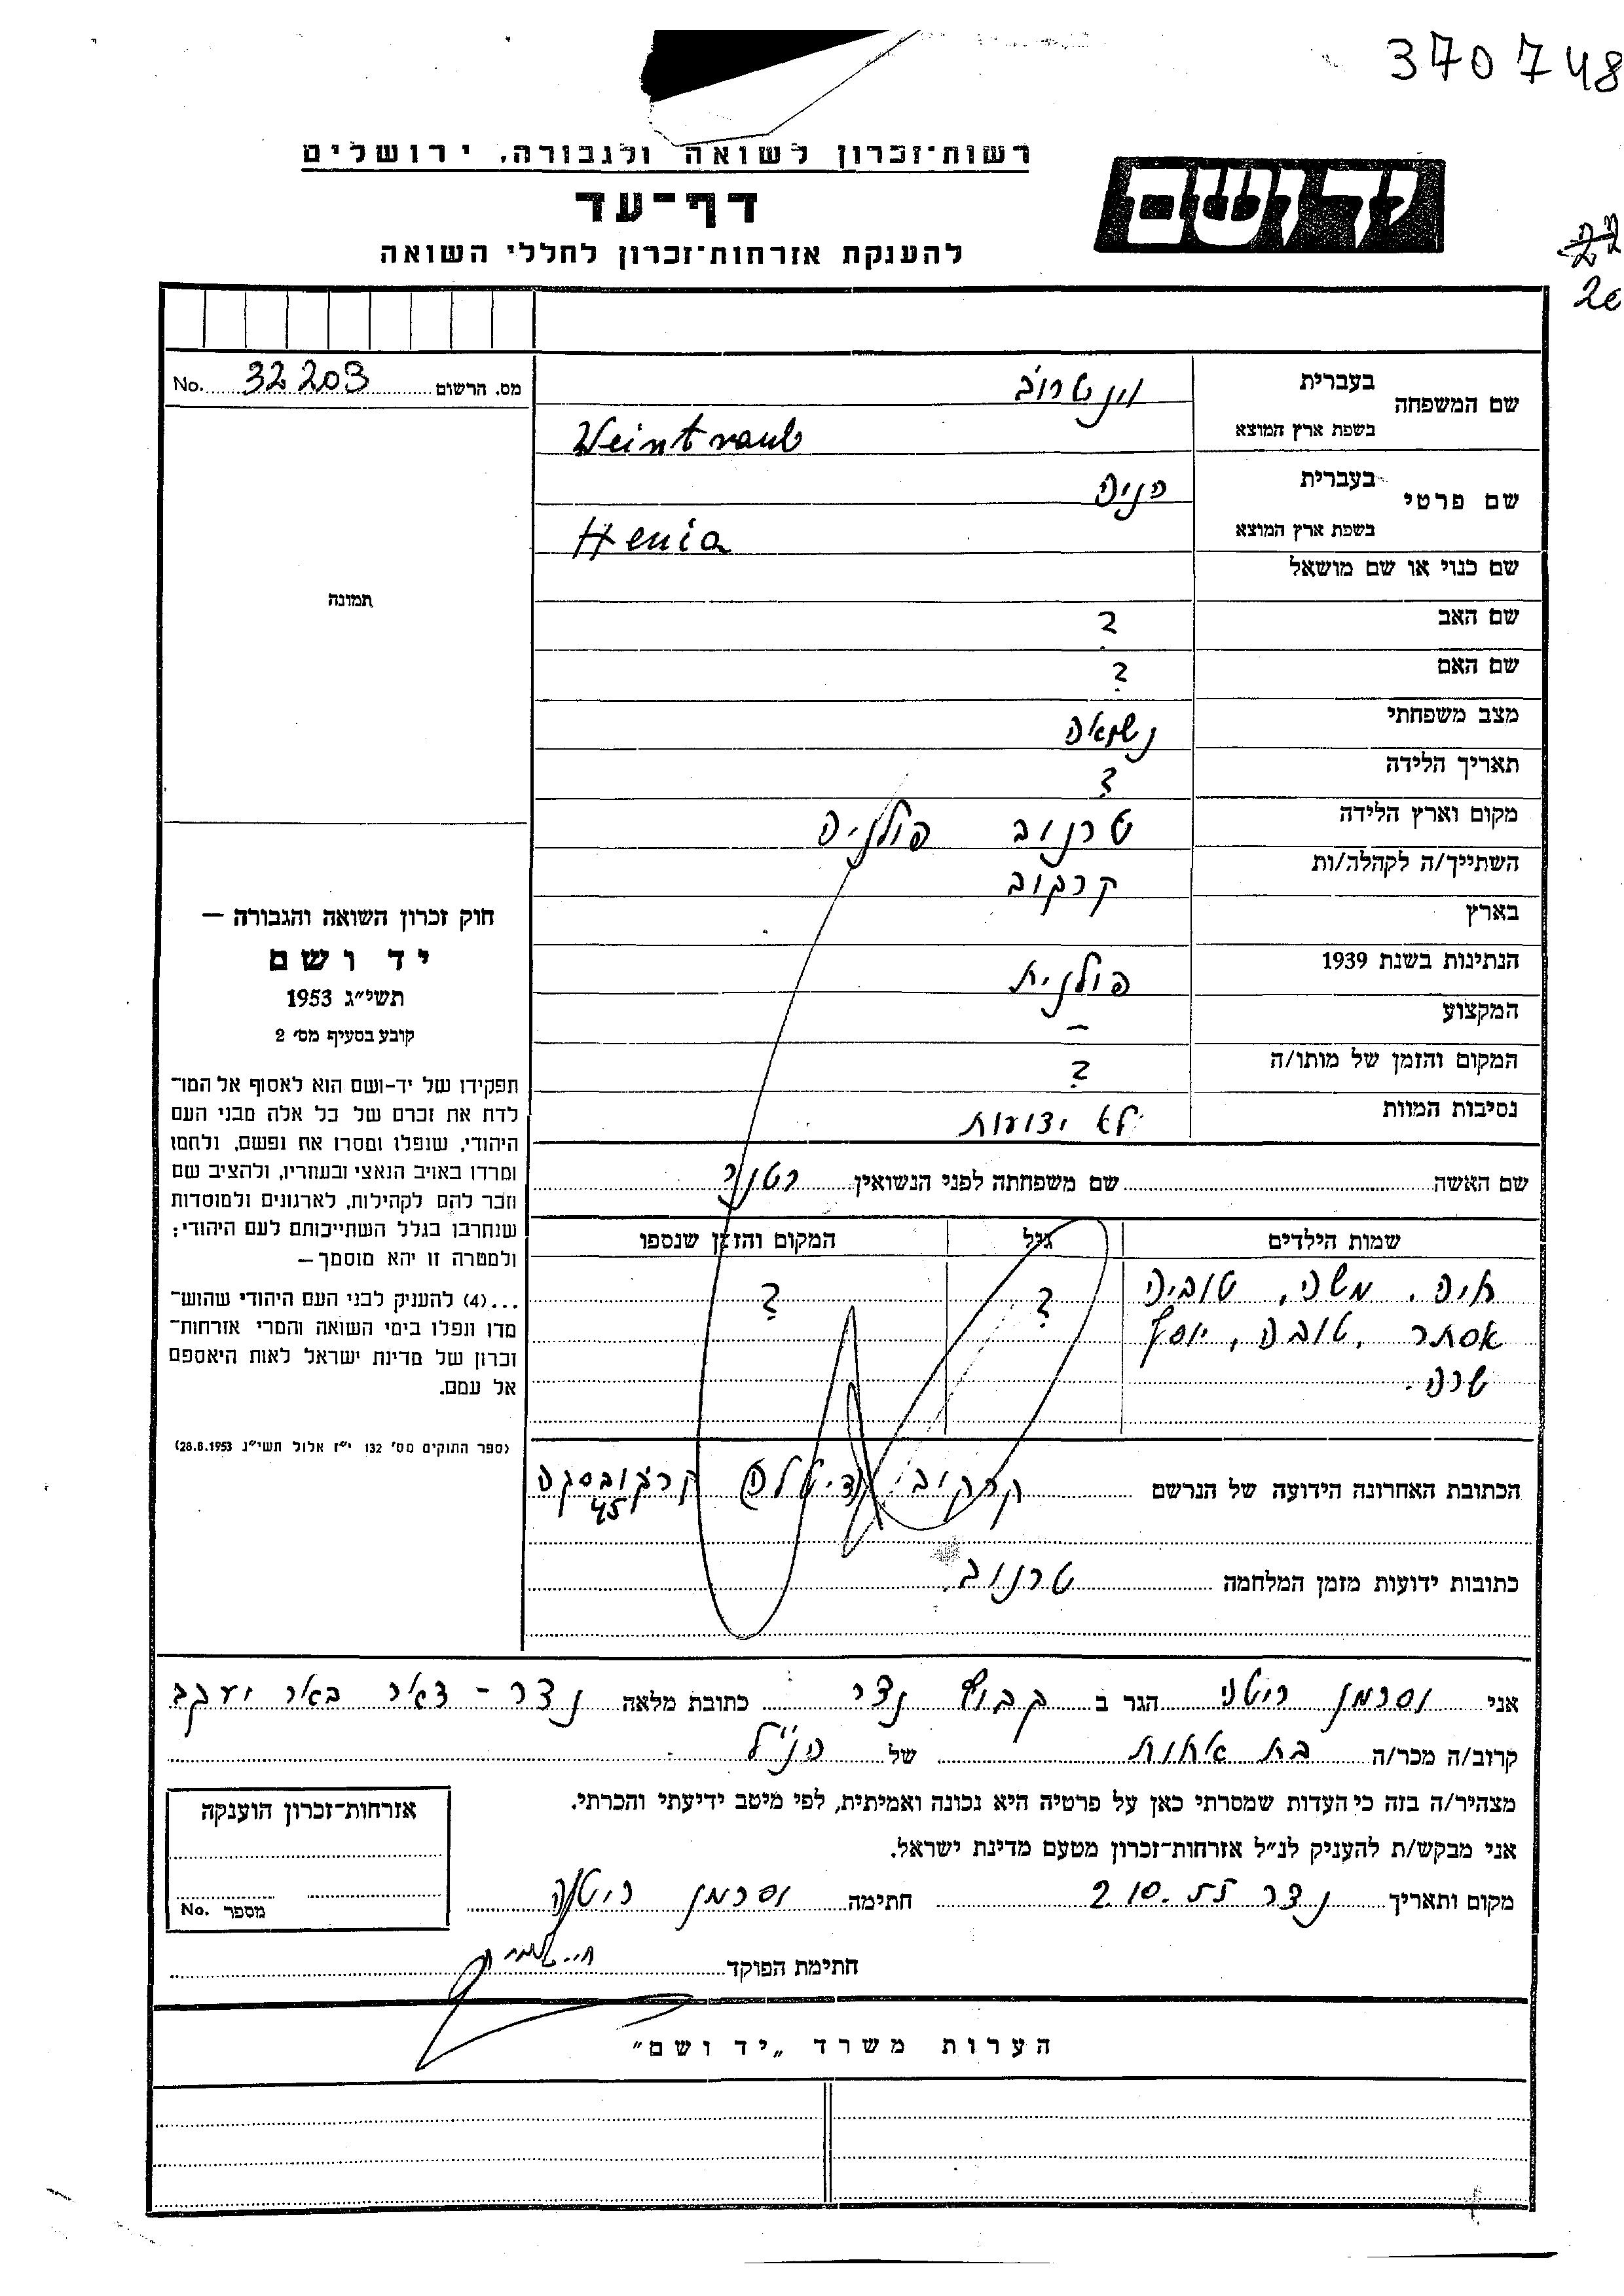 370748
רשות־זכרון לשואה ולגבורה, ירושלים
ידושם
דף־עד
להענקת אזרחות־זכרון לחללי השואה
מס. הרשום 32203 No.
שם המשפחה
בעברית וינטרוב
בשפת ארץ המוצא Weintraub
שם פרטי
בעברית הניה
בשפת ארץ המוצא Henia
שם כנוי או שם מושאל
שם האב ?
שם האם ?
מצב משפחתי נשואה
תאריך הלידה ?
מקום וארץ הלידה טרנוב פולניה
השתייך/ה לקהלה/ות קרקוב
בארץ
הנתינות בשנת 1939 פולנית
המקצוע –
המקום והזמן של מותו/ה ?
נסיבות המוות לא ידועות
שם האשה שם משפחתה לפני הנשואין
שמות הילדים גיל המקום והזמן שנספו
איה, משה, טוביה ? ?
אסתר, טובה, יוסף
שרה.
הכתובת האחרונה הידועה של הנרשם קרקוב
45
כתובות ידועות מזמן המלחמה טרנוב
תמונה
חוק זכרון השואה והגבורה —
יד ושם
תשי״ג 1953
קובע בסעיף מס׳ 2
תפקידו של יד-ושם הוא לאסוף אל המו־
לדת את זכרם של כל אלה מבני העם
היהודי, שנפלו ומסרו את נפשם, נלחמו
ומרדו באויב הנאצי ובעוזריו, ולהציב שם
וזכר להם לקהילות, לארגונים ולמוסדות
שנחרבו בגלל השתייכותם לעם היהודי;
ולמטרה זו יהא מוסמך—
...(4) להעניק לבני העם היהודי שהוש־
מדו ונפלו בימי השואה והמרי אזרחות־
זכרון של מדינת ישראל לאות היאספם
אל עמם.
(ספר החוקים מס׳ 132 י״ז אלול תשי״ג 28.8.1953)
אני וסרמן הגר ב קבוץ נצר כתובת מלאה נצר – דאר באר יעקב
קרוב/ה מכר/ה בת אחות של הנ״ל
מצהיר/ה בזה כי העדות שמסרתי כאן על פרטיה היא נכונה ואמיתית, לפי מיטב ידיעתי והכרתי.
אני מבקש/ת להעניק לנ״ל אזרחות־זכרון מטעם מדינת ישראל.
מקום ותאריך נצר 2.10.55 חתימה וסרמן
חתימת הפוקד
אזרחות־זכרון הוענקה
מספר No.
הערות משרד „יד ושם”